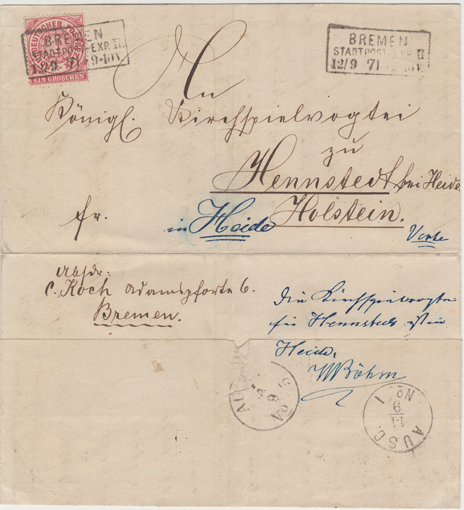 NORDDEUTSCHER POSTBEZIRK
EIN GROSCHEN
BREMEN
STADTPOST-EXP. II.
12/9 71 9-10V.
BREMEN
STADTPOST II
12/9 71
An
Königl. Kirchspielvogtei
zu
Hennstedt bei Heide
fr. in Heide Holstein.
Verte
Absdr:
C. Koch Adamspforte 6.
Bremen.
Die Kirchspielvogtei
für Hennstedt ist in
Heide.
Böhm
AUSG.
No 1